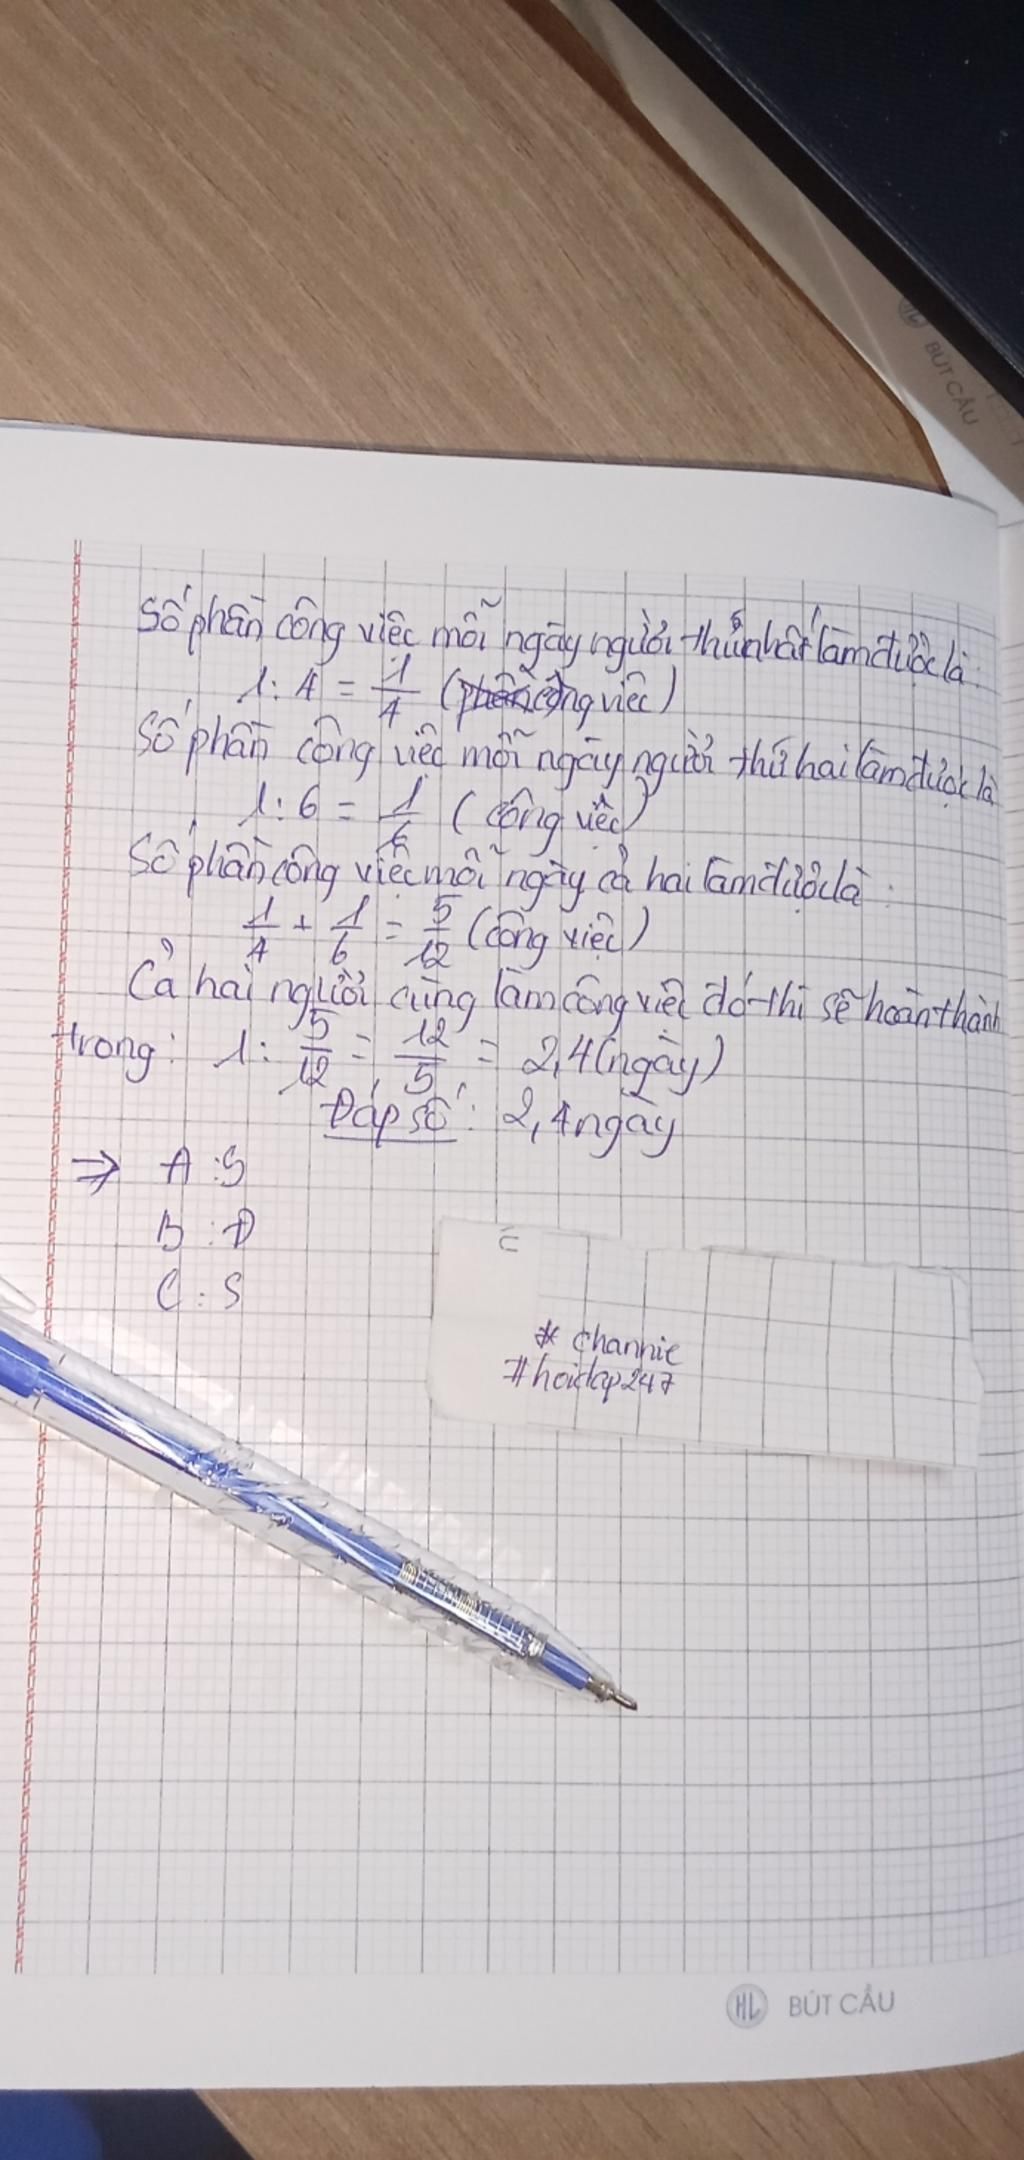 HL BÚT CẦU
Số phần công việc mỗi ngày người thứ nhất làm được là:
1 : 4 = 1/4 (công việc)
Số phần công việc mỗi ngày người thứ hai làm được là
1 : 6 = 1/6 (công việc)
Số phần công việc mỗi ngày cả hai làm được là:
1/4 + 1/6 = 5/12 (công việc)
Cả hai người cùng làm công việc đó thì sẽ hoàn thành
trong: 1 : 5/12 = 12/5 = 2,4 (ngày)
Đáp số: 2,4 ngày
⇒ A : S
B : Đ
C : S
* channie
#hoidap247
HL BÚT CẦU